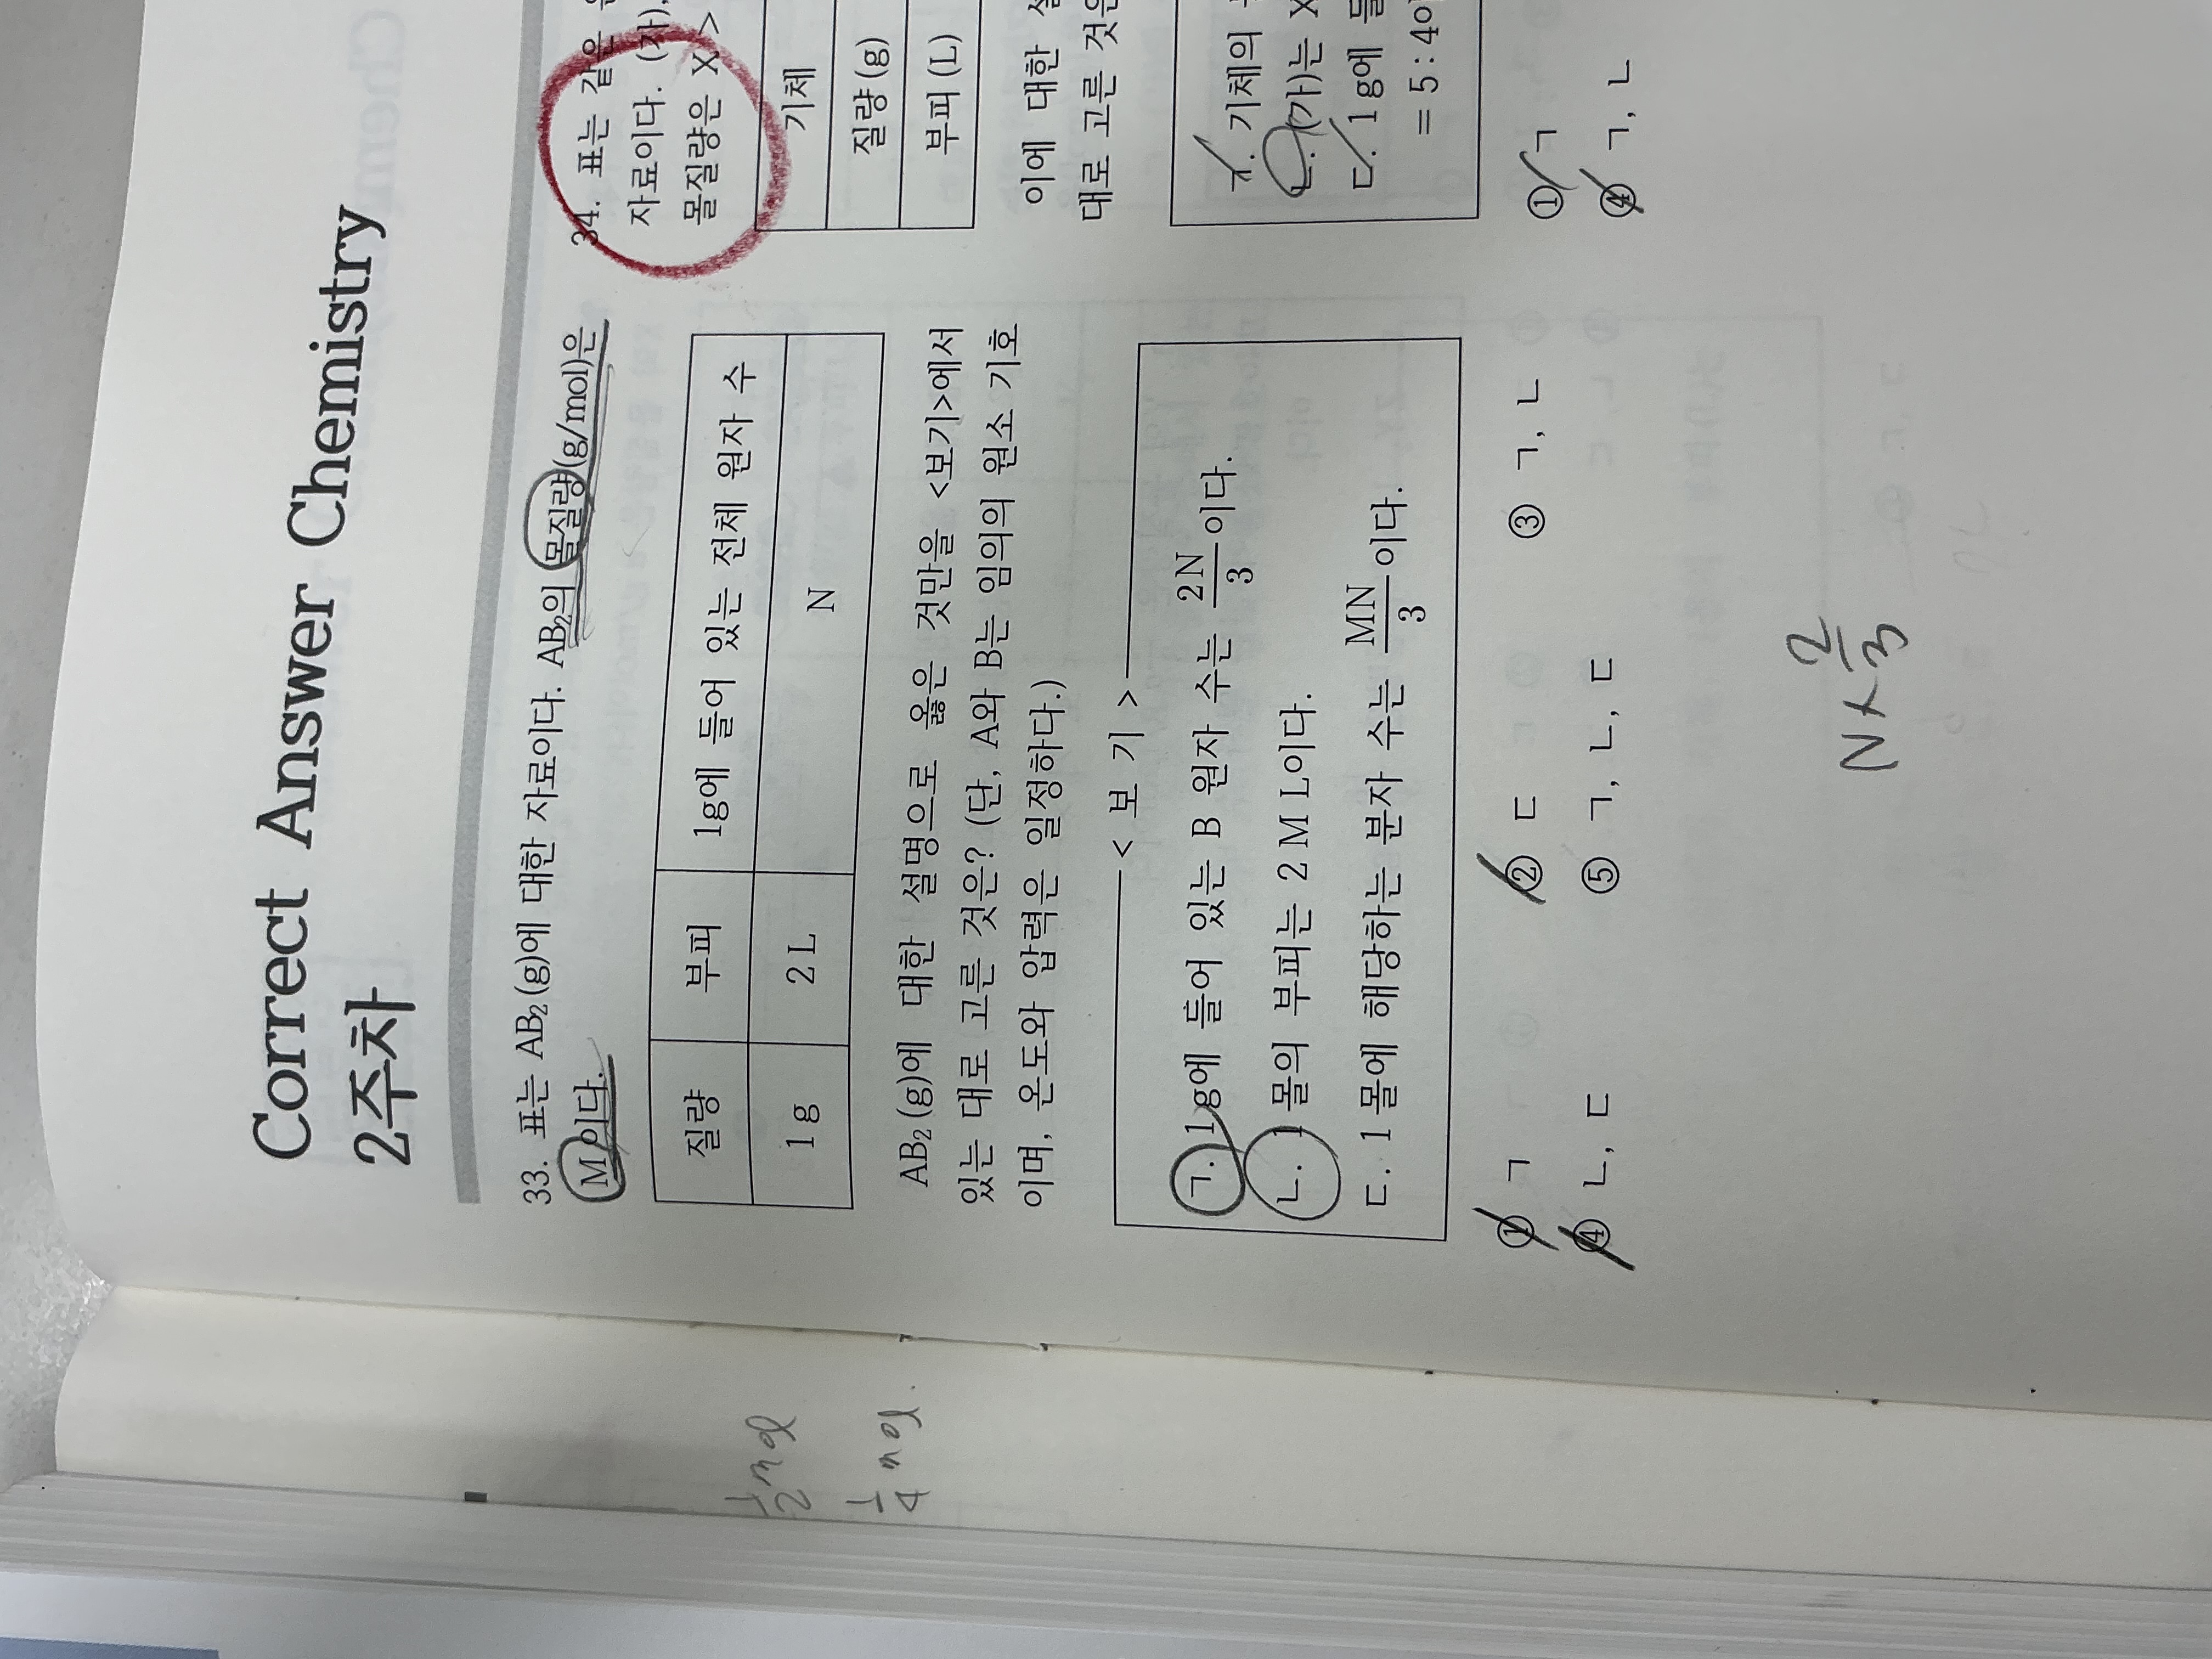 Correct Answer Chemistry
2주차
33. 표는 AB₂(g)에 대한 자료이다. AB₂의 몰질량(g/mol)은
M이다.
질량 부피 1g에 들어 있는 전체 원자 수
1g 2L N
AB₂(g)에 대한 설명으로 옳은 것만을 <보기>에서
있는 대로 고른 것은? (단, A와 B는 임의의 원소 기호
이며, 온도와 압력은 일정하다.)
< 보 기 >
ㄱ. 1g에 들어 있는 B 원자 수는 2N/3이다.
ㄴ. 1몰의 부피는 2M L이다.
ㄷ. 1몰에 해당하는 분자 수는 MN/3이다.
① ㄱ ② ㄷ ③ ㄱ, ㄴ
④ ㄴ, ㄷ ⑤ ㄱ, ㄴ, ㄷ
N × 2/3
1/2 mol
1/4 mol.
34. 표는 같은
자료이다. (가),
몰질량은 X >
기체
질량(g)
부피(L)
이에 대한
대로 고른 것은
ㄱ. 기체의
ㄴ. (가)는 X
ㄷ. 1g에
= 5 : 4이
① ㄱ
④ ㄱ, ㄴ